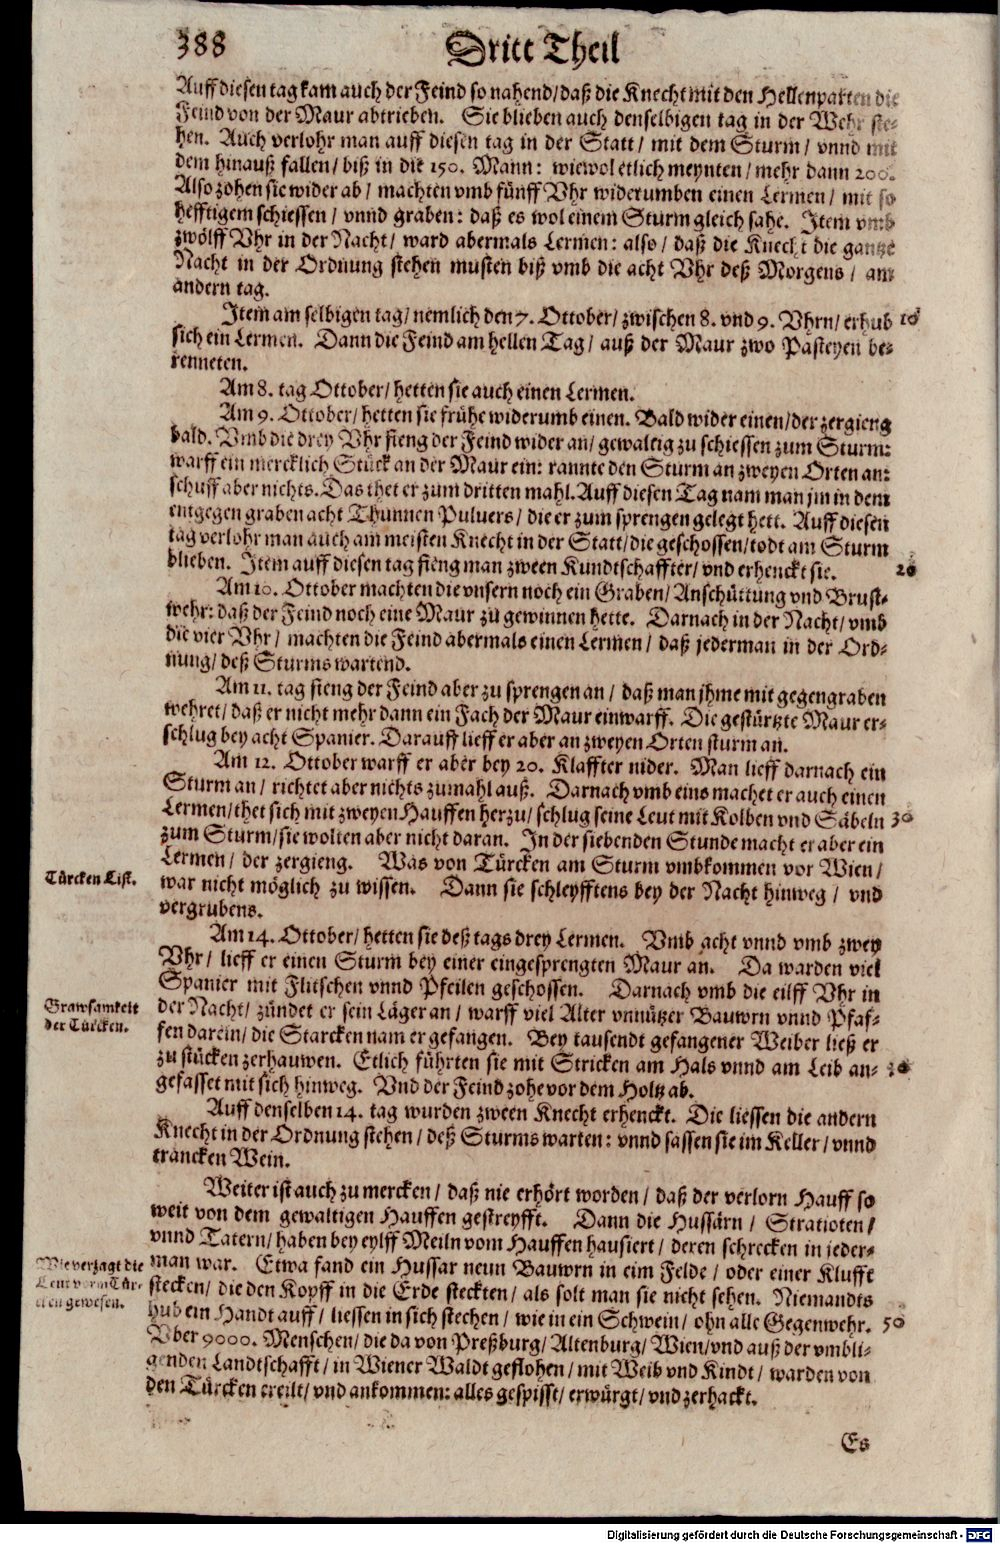 388
Dritt Theil
Auff diesen tag kam auch der Feind so nahend/ daß die Knecht mit den Hellenparten die
Feind von der Maur abtrieben. Sie blieben auch denselbigen tag in der Wehr ste-
hen. Auch verlohr man auff diesen tag in der Statt/ mit dem Sturm/ vnnd mit
dem hinauß fallen/ biß in die 150. Mann: wiewol etlich meynten/ mehr dann 200.
Also zohen sie wider ab/ machten vmb fünff Vhr widerumben einen Lermen/ mit so
hefftigem schiessen/ vnnd graben: daß es wol einem Sturm gleich sahe. Item vmb
zwölff Vhr in der Nacht/ ward abermals Lermen: also/ daß die Knecht die gantze
Nacht in der Ordnung stehen musten biß vmb die acht Vhr deß Morgens/ am
andern tag.
Item am selbigen tag/ nemlich den 7. Ottober/ zwischen 8. vnd 9. Vhrn/ erhub 10
sich ein Lermen. Dann die Feind am hellen Tag/ auß der Maur zwo Pasteyen be-
renneten.
Am 8. tag Ottober/ hetten sie auch einen Lermen.
Am 9. Ottober/ hetten sie frühe widerumb einen. Bald wider einen/ der zergieng
bald. Vmb die drey Vhr fieng der Feind wider an/ gewaltig zu schiessen zum Sturm:
warff ein mercklich Stück an der Maur ein: rannte den Sturm an zweyen Orten an:
schuff aber nichts. Das thet er zum dritten mahl. Auff diesen Tag nam man jm in dem
entgegen graben acht Thunnen Puluers/ die er zum sprengen gelegt hett. Auff diesen
tag verlohr man auch am meisten Knecht in der Statt/ die geschossen/ todt am Sturm
blieben. Item auff diesen tag fieng man zween Kundtschaffter/ vnd erhenckt sie. 20
Am 10. Ottober machten die vnsern noch ein Graben/ Anschüttung vnd Brust-
wehr: daß der Feind noch eine Maur zu gewinnen hette. Darnach in der Nacht/ vmb
die vier Vhr/ machten die Feind abermals einen Lermen/ daß jederman in der Ord-
nung/ deß Sturms wartend.
Am 11. tag fieng der Feind aber zu sprengen an/ daß man jhme mit gegengraben
wehret/ daß er nicht mehr dann ein Fach der Maur einwarff. Die gestürtzte Maur er-
schlug bey acht Spanier. Darauff lieff er aber an zweyen Orten sturm an.
Am 12. Ottober warff er aber bey 20. Klaffter nider. Man lieff darnach ein
Sturm an/ richtet aber nichts zumahl auß. Darnach vmb eins machet er auch einen
Lermen/ thet sich mit zweyen Hauffen herzu/ schlug seine Leut mit Kolben vnd Säbeln 30
zum Sturm/ sie wolten aber nicht daran. In der siebenden Stunde macht er aber ein
Lermen/ der zergieng. Was von Türcken am Sturm vmbkommen vor Wien/
Türcken List.
war nicht möglich zu wissen. Dann sie schleyfftens bey der Nacht hinweg/ vnd
vergrubens.
Am 14. Ottober/ hetten sie deß tags drey Lermen. Vmb acht vnnd vmb zwey
Vhr/ lieff er einen Sturm bey einer eingesprengten Maur an. Da warden viel
Spanier mit Flitschen vnnd Pfeilen geschossen. Darnach vmb die eilff Vhr in
Grawsamkeit
der Türcken.
der Nacht/ zündet er sein Läger an/ warff viel Alter vnnützer Bauwrn vnnd Pfaf-
fen darein/ die Starcken nam er gefangen. Bey tausendt gefangener Weiber ließ er
zu stücken zerhauwen. Etlich führten sie mit Stricken am Hals vnnd am Leib an-
gefasset mit sich hinweg. Vnd der Feind zohe vor dem Holtz ab.
Auff denselben 14. tag wurden zween Knecht erhenckt. Die liessen die andern
Knecht in der Ordnung stehen/ deß Sturms warten: vnnd sassen sie im Keller/ vnnd
trancken Wein.
Weiter ist auch zu mercken/ daß nie erhört worden/ daß der verlorn Hauff so
weit von dem gewaltigen Hauffen gestreyfft. Dann die Hussärn/ Stratioten/
vnnd Tatern/ haben bey eylff Meiln vom Hauffen hausiert/ deren schrecken in jeder-
Wie verzagt die
Leut vorm Tür-
cken gewesen.
man war. Etwa fand ein Hussar neun Bauwrn in eim Felde/ oder einer Klufft
stecken/ die den Kopff in die Erde steckten/ als solt man sie nicht sehen. Niemandts
hub ein Handt auff/ liessen in sich stechen/ wie in ein Schwein/ ohn alle Gegenwehr. 50
Vber 9000. Menschen/ die da von Preßburg/ Altenburg/ Wien/ vnd auß der vmbli-
genden Landtschafft/ in Wiener Waldt geflohen/ mit Weib vnd Kindt/ warden von
den Türcken ereilt/ vnd ankommen: alles gespisst/ erwürgt/ vnd zerhackt.
Es
Digitalisierung gefördert durch die Deutsche Forschungsgemeinschaft - DFG